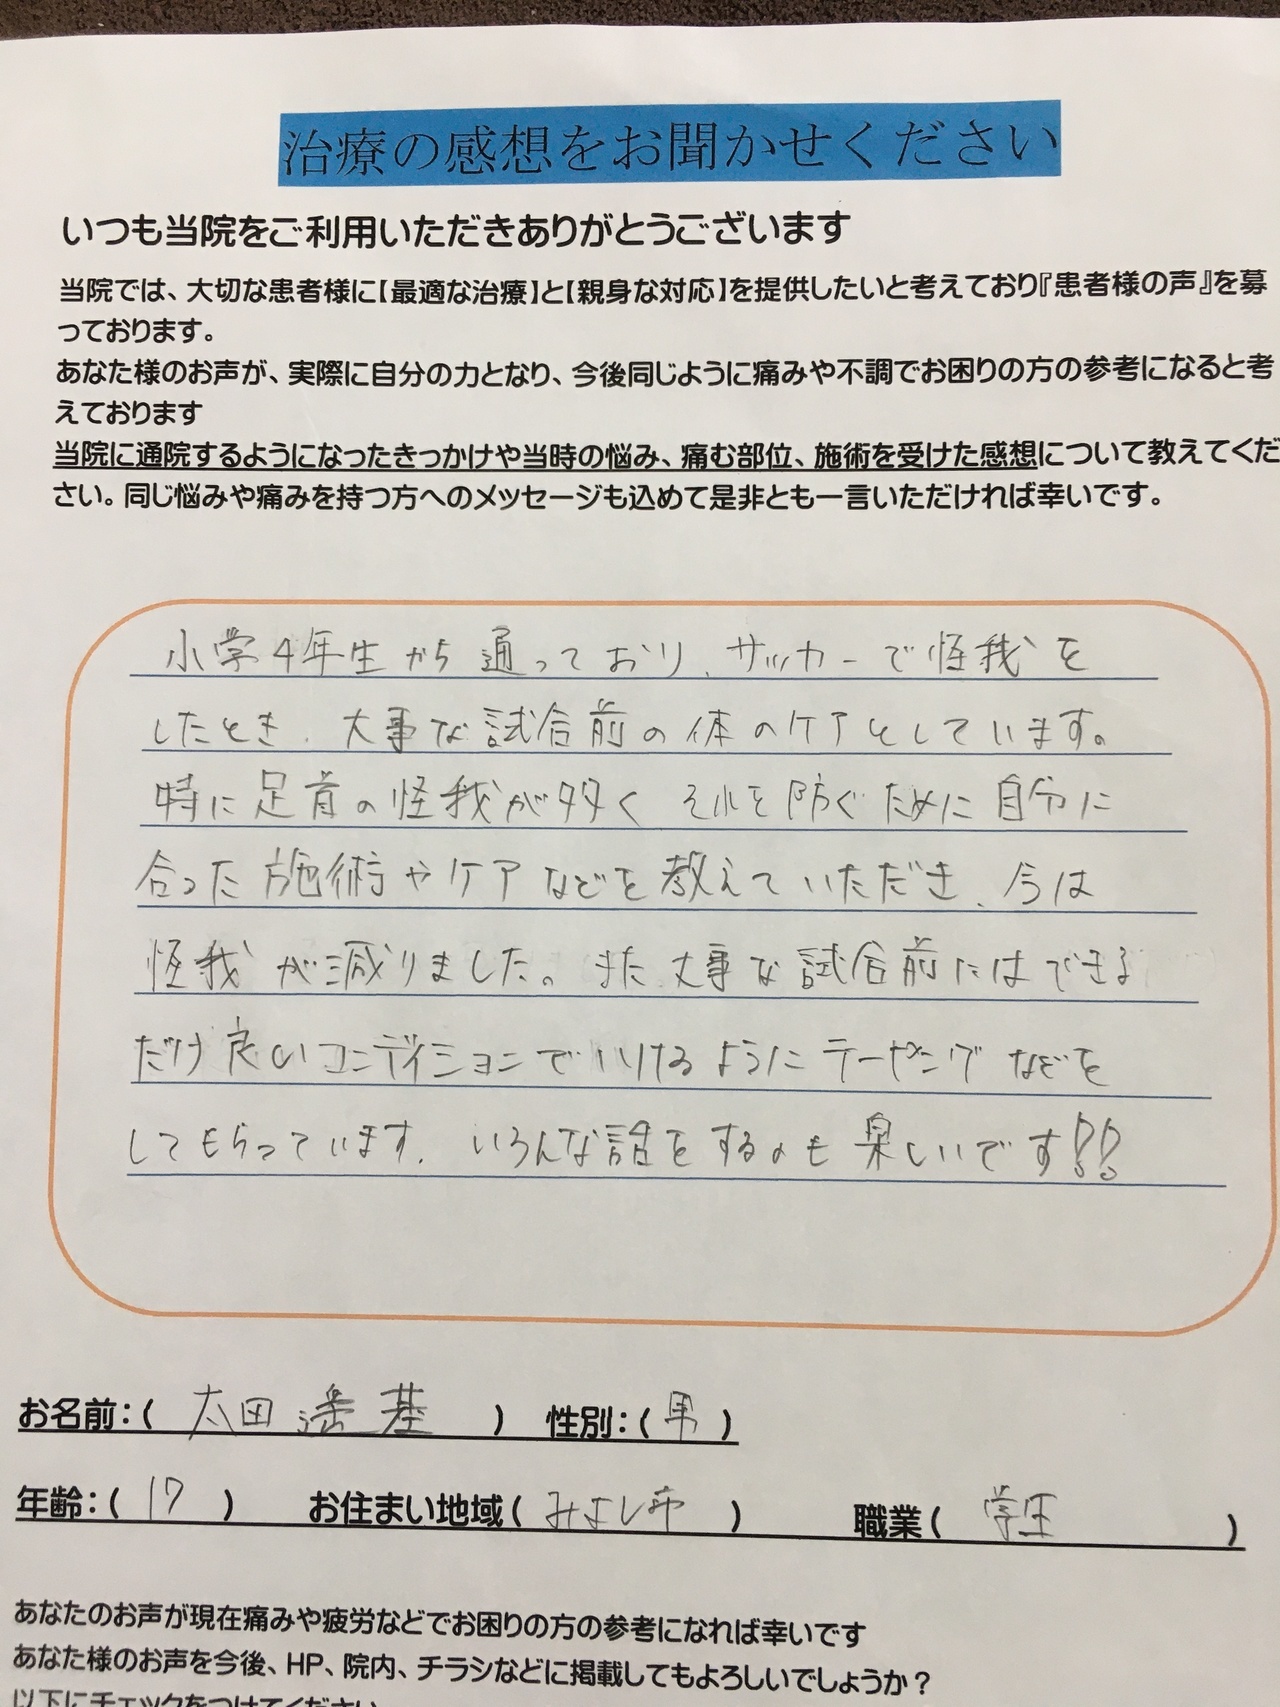 治療の感想をお聞かせください
いつも当院をご利用いただきありがとうございます
当院では、大切な患者様に【最適な治療】と【親身な対応】を提供したいと考えており『患者様の声』を募
っております。
あなた様のお声が、実際に自分の力となり、今後同じように痛みや不調でお困りの方の参考になると考
えております
当院に通院するようになったきっかけや当時の悩み、痛む部位、施術を受けた感想について教えてくだ
さい。同じ悩みや痛みを持つ方へのメッセージも込めて是非とも一言いただければ幸いです。
小学4年生から通っており、サッカーで怪我を
したとき、大事な試合前の体のケアとしています。
特に足首の怪我が多く それを防ぐために自分に
合った施術やケアなどを教えていただき、今は
怪我が減りました。また大事な試合前にはできる
だけ良いコンディションでいけるようにテーピングなどを
してもらっています。いろんな話をするのも楽しいです!!
お名前:( 太田遥基 ) 性別:( 男 )
年齢:( 17 ) お住まい地域( みよし市 ) 職業( 学生 )
あなたのお声が現在痛みや疲労などでお困りの方の参考になれば幸いです
あなた様のお声を今後、HP、院内、チラシなどに掲載してもよろしいでしょうか？
以下にチェックをつけてください